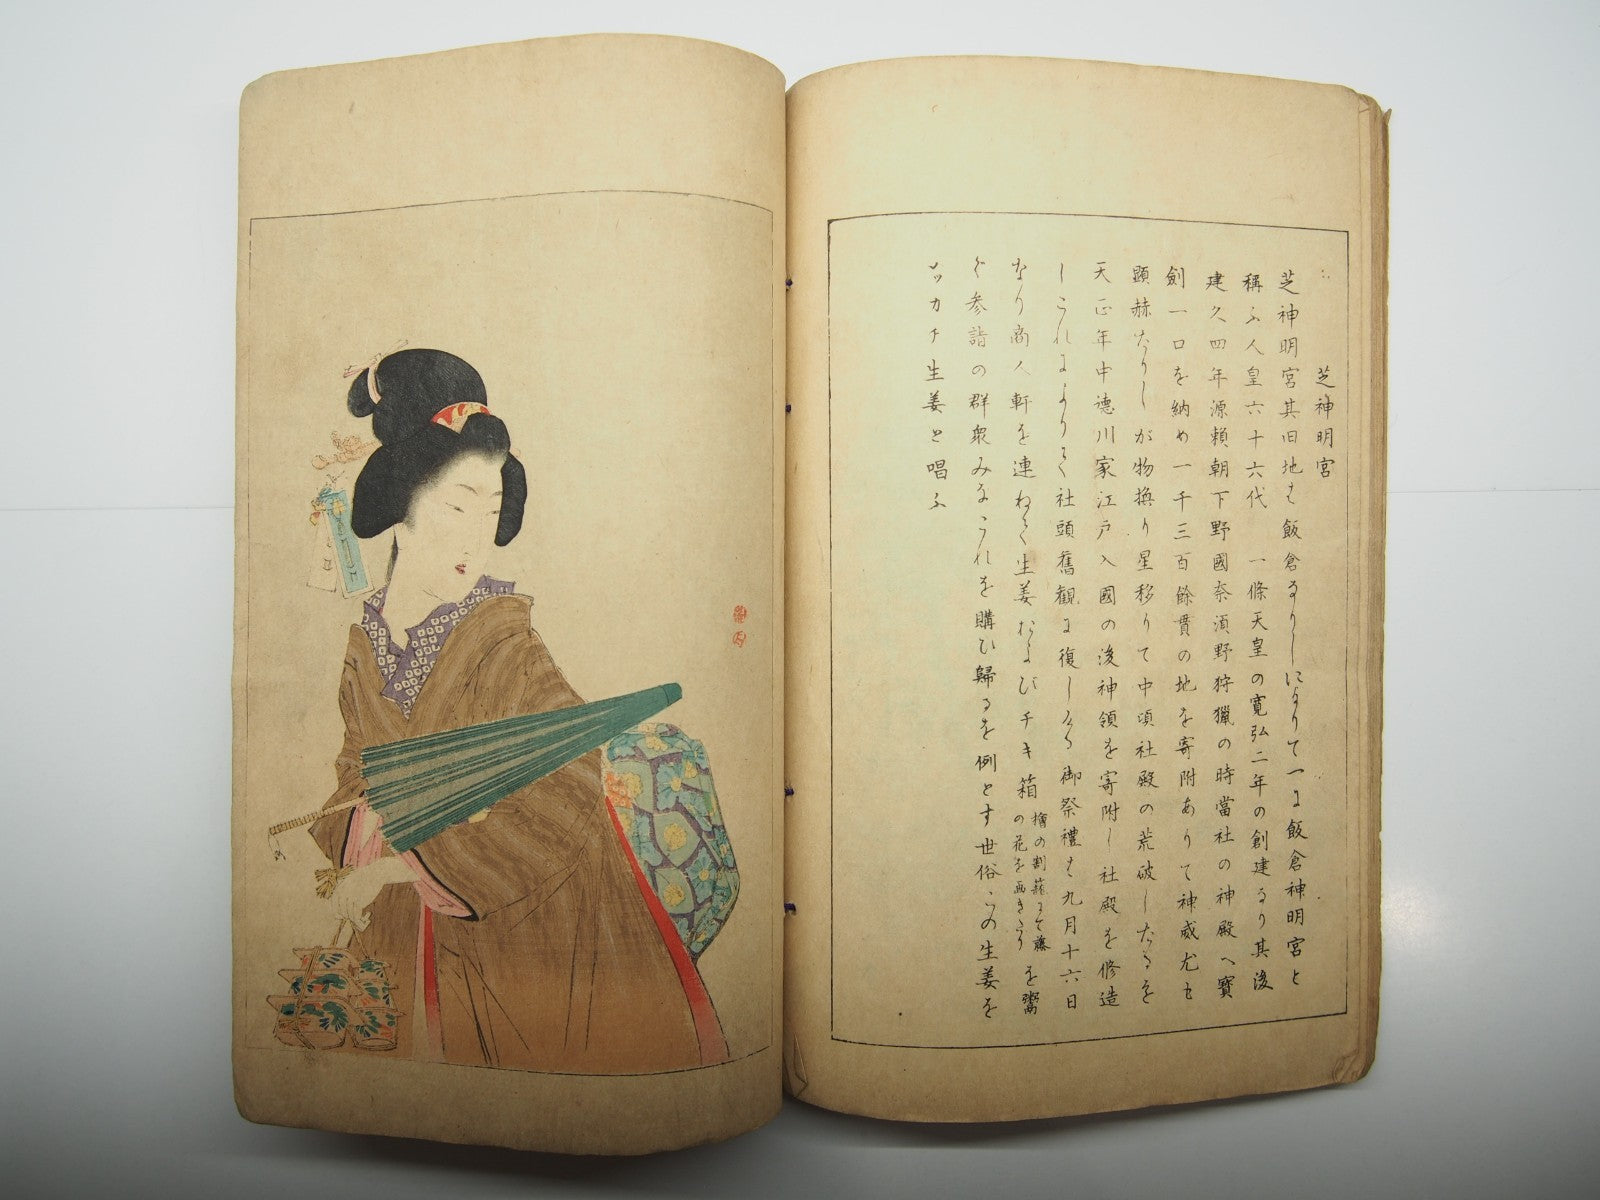 芝神明宮
芝神明宮其旧地は飯倉なりしによりて一に飯倉神明宮と
稱ふ人皇六十六代一條天皇の寛弘二年の創建なり其後
建久四年源頼朝下野國奈須野狩獵の時當社の神殿へ寳
劍一口を納め一千三百餘貫の地を寄附ありて神威尤も
顕赫なりしが物換り星移りて中頃社殿の荒破したるを
天正年中德川家江戸入國の後神領を寄附し社殿を修造
しこれによりて社頭舊観に復しける御祭禮は九月十六日
なり商人軒を連ねて生姜およびチキ箱檜の割籠にて藤の花を画きたりを鬻
ぐ参詣の群衆みなこれを購ひ歸るを例とす世俗この生姜を
ッカチ生姜と唱ふ